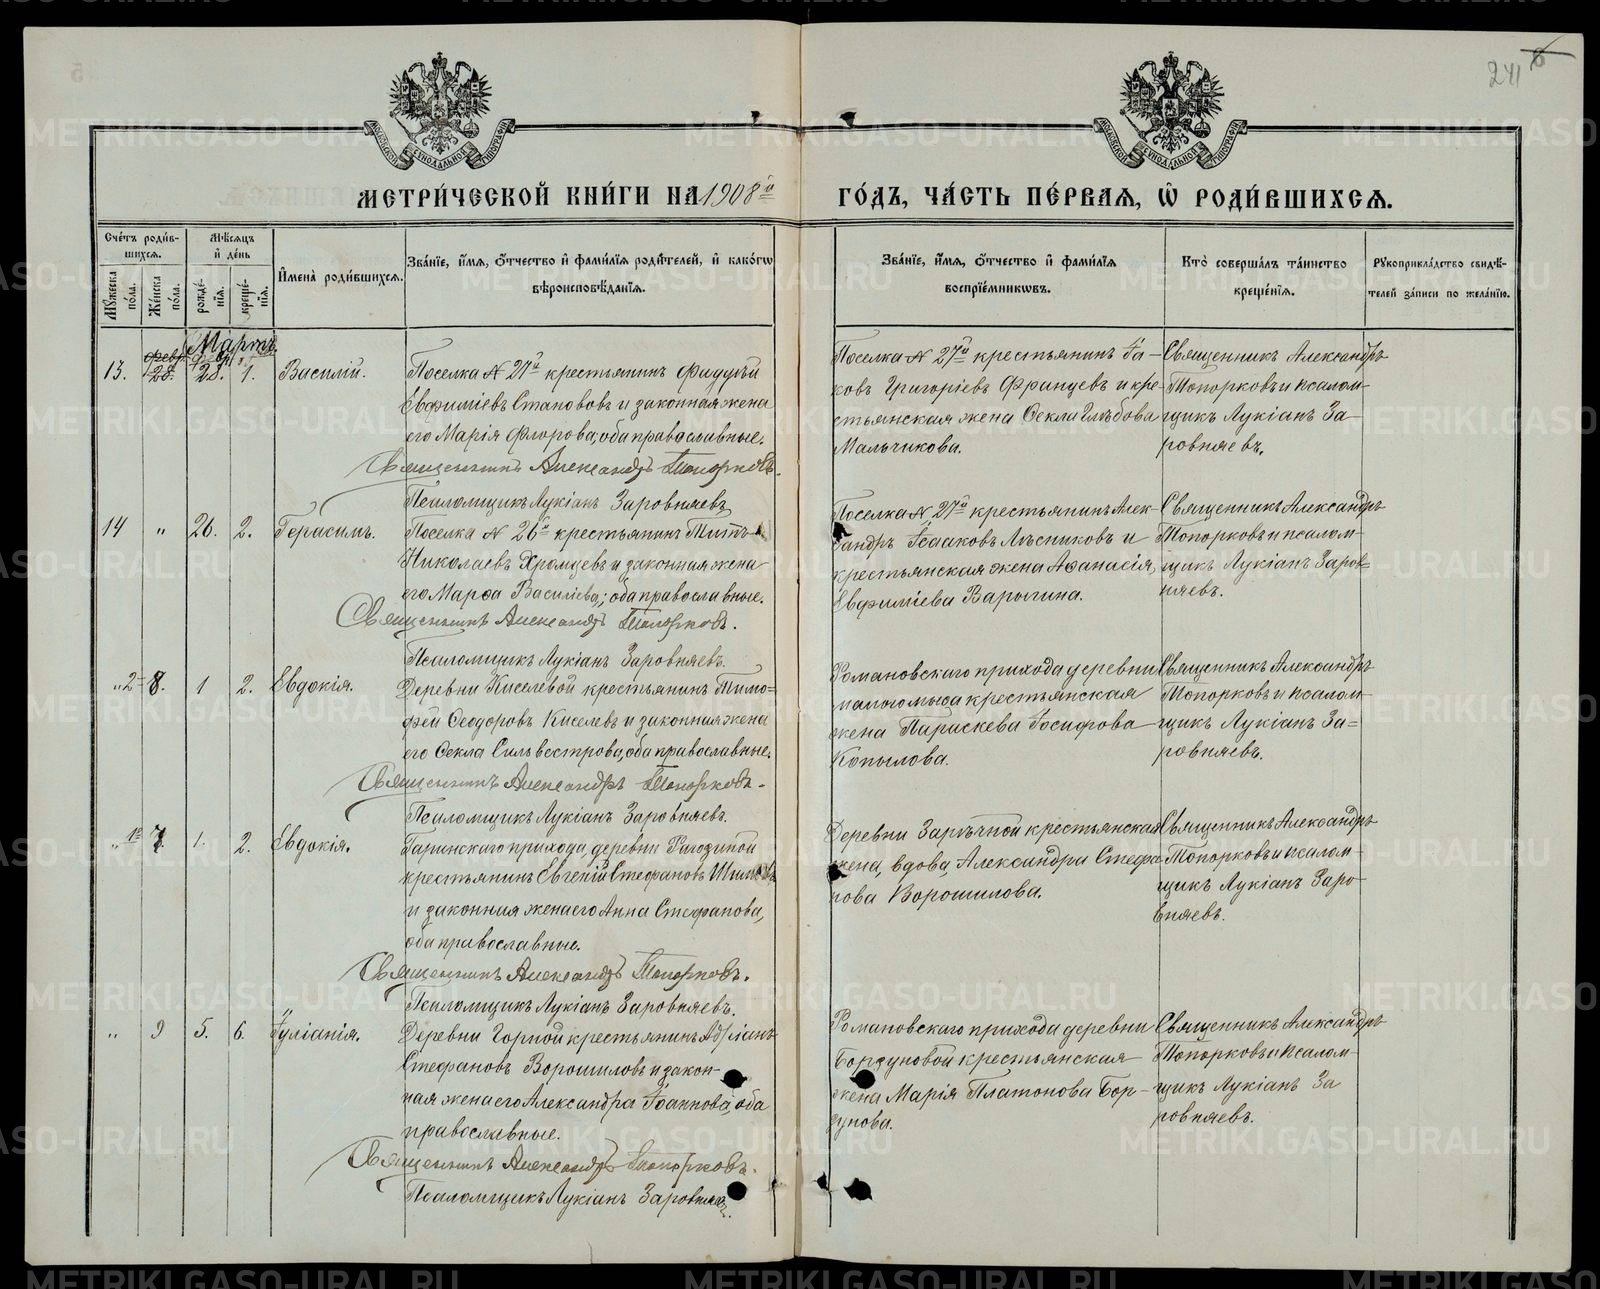 241
МЕТРИ́ЧЕСКОЙ КНИ́ГИ НА 1908й ГО́ДЪ, ЧА́СТЬ ПЕ́РВАЯ, Ѽ РОДИ́ВШИХСЯ.
Сче́тъ роди́в-
шихся.
Мѣ́сяцъ
и҆ де́нь
Му́жеска по́ла.
Же́нска по́ла.
рожде́-
нїя.
креще́-
нїя.
И҆мена̀ роди́вшихся.
Зва́нїе, и҆́мя, ѻ҆́тчество и҆ фами́лїя роди́телей, и҆ како́гѡ
вѣроисповѣ́данїя.
Зва́нїе, и҆́мя, ѻ҆́тчество и҆ фами́лїя
воспрїе́мникѡвъ.
Кто̀ соверша́лъ та́инство
креще́нїя.
Рꙋкоприкла́дство свидѣ́-
телей за́писи по жела́нїю.
Мартъ.
13. 28. 28. 1. Василій.
Поселка № 27й крестьянинъ Фаддей
Евфиміевъ Стаповъ и законная жена
его Марія Флорова, оба православные.
Священникъ Александръ Топорковъ.
Псаломщикъ Лукіанъ Заровняевъ
Поселка № 27й крестьянинъ Іа-
ковъ Григоріевъ Францевъ и кре-
стьянская жена Ѳекла Глѣбова
Мальчикова.
Священникъ Александръ
Топорковъ и псалом-
щикъ Лукіанъ За-
ровняевъ.
14 " 26. 2. Герасимъ.
Поселка № 26й крестьянинъ Титъ
Николаевъ Хромцевъ и законная жена
его Марѳа Василіева; оба православные.
Священникъ Александръ Топорковъ.
Псаломщикъ Лукіанъ Заровняевъ.
Поселка № 27й крестьянинъ Алек-
сандръ Исааковъ Лѣсниковъ и
крестьянская жена Аѳанасія
Евфиміева Варыгина.
Священникъ Александръ
Топорковъ и псалом-
щикъ Лукіанъ Заров-
няевъ.
" 8. 1 2. Евдокія.
Деревни Киселевой крестьянинъ Тимо-
фей Ѳеодоровъ Киселевъ и законная жена
его Ѳекла Сильвестрова, оба православные.
Священникъ Александръ Топорковъ.
Псаломщикъ Лукіанъ Заровняевъ.
Романовскаго прихода деревни
малогомыса крестьянская
жена Параскева Іосифова
Копылова.
Священникъ Александръ
Топорковъ и псалом-
щикъ Лукіанъ За-
ровняевъ.
" 7 1. 2. Евдокія.
Гаринскаго прихода, деревни Рагозиной
крестьянинъ Евгеній Стефановъ
и законная жена его Анна Стефанова,
оба православные.
Священникъ Александръ Топорковъ.
Псаломщикъ Лукіанъ Заровняевъ.
Деревни Зарѣчной крестьянская
жена, вдова, Александра Стефа-
нова Ворошилова.
Священникъ Александръ
Топорковъ и псалом-
щикъ Лукіанъ Заро-
вняевъ.
" 9 5. 6. Іуліанія.
Деревни Горной крестьянинъ Адріанъ
Стефановъ Ворошиловъ и закон-
ная жена его Александра Іоаннова, оба
православные.
Священникъ Александръ Топорковъ.
Псаломщикъ Лукіанъ Заровняевъ.
Романовскаго прихода деревни
Бордуновой крестьянская
жена Марія Платонова Бор-
дунова.
Священникъ Александръ
Топорковъ и псалом-
щикъ Лукіанъ За
ровняевъ.
METRIKI.GASO-URAL.RU